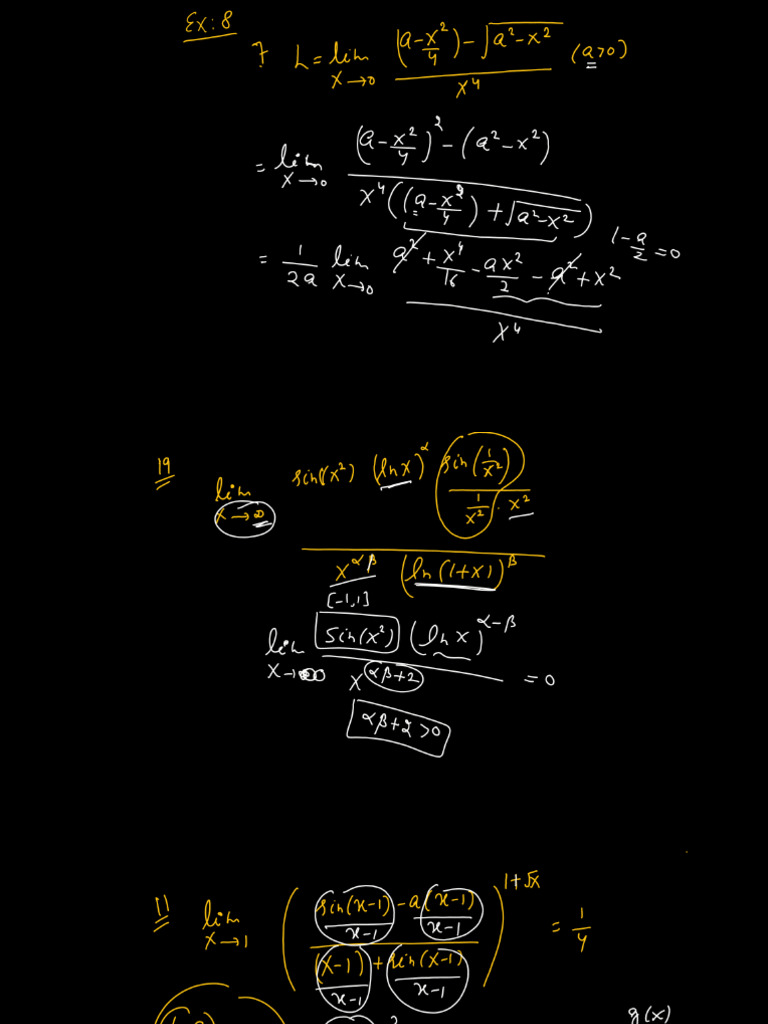 Ex: 8
7 L = lim x→0 ((a - x²/4) - √(a² - x²)) / x⁴ (a>0)
= lim x→0 ((a - x²/4)² - (a² - x²)) / (x⁴((a - x²/4) + √(a² - x²)))
1 - a/2 = 0
= 1/2a lim x→0 (a² + x⁴/16 - ax²/2 - a² + x²) / x⁴
19 lim x→∞ (sin(x²) (lnx)^α sin(1/x²)/(1/x² · x²)) / (x^αβ (ln(1+x))^β)
[-1,1]
lim x→∞ (sin(x²) (ln x)^(α-β)) / x^(αβ+2) = 0
αβ+2 >0
11 lim x→1 ((sin(x-1)/(x-1) - a(x-1)/(x-1)) / ((x-1)/(x-1) + sin(x-1)/(x-1)))^(1+√x) = 1/4
g(x)